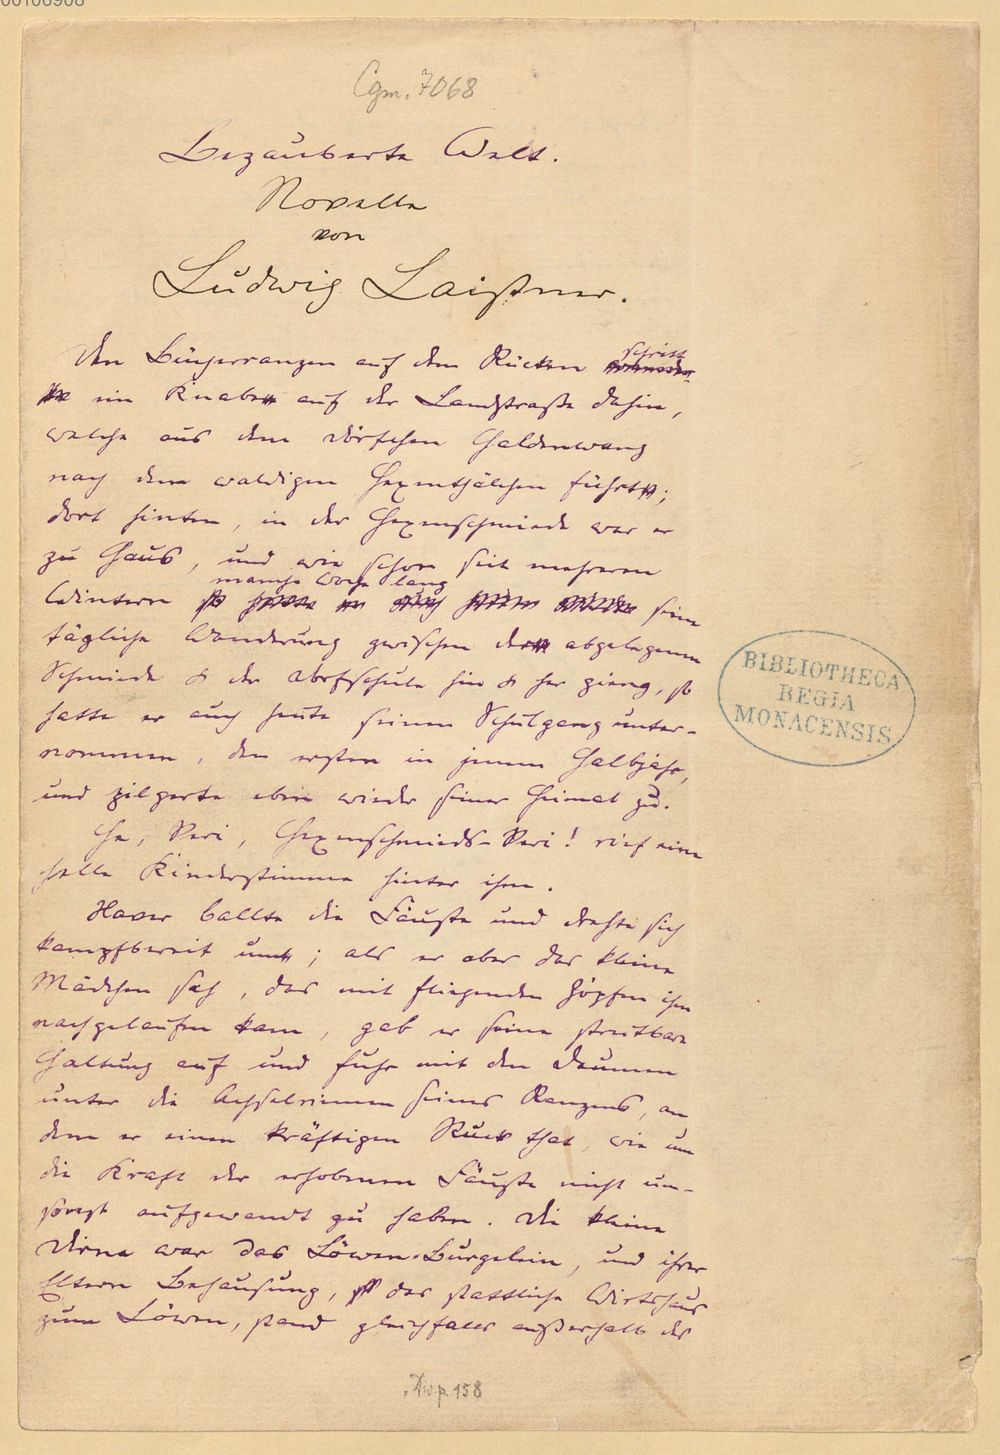 Cgm. 7068
Bezauberte Welt.
Novelle
von
Ludwig Laistner.
Den Bücherranzen auf dem Rücken schritt
ein Knabe auf der Landstraße dahin,
welche aus dem Dörfchen Haldenwang
nach dem waldigen Hexenthälchen führt;
dort hinten, in der Hexenschmiede war er
zu Haus, und wie schon seit mehreren
manche Woche lang
Wintern seine
tägliche Wanderung zwischen der abgelegenen
Schmiede & der Dorfschule hin & her gieng, so
hatte er auch heute seinen Schulgang unter-
nommen, den ersten in jenem Halbjahr,
und pilgerte eben wieder seiner Heimat zu.
He, Veri, Hexenschmieds-Veri! rief eine
helle Kinderstimme hinter ihm.
Xaver ballte die Fäuste und drehte sich
kampfbereit um; als er aber das kleine
Mädchen sah, das mit fliegenden Zöpfen ihm
nachgelaufen kam, gab er seine streitbare
Haltung auf und fuhr mit den Daumen
unter die Achselriemen seines Ranzens, an
dem er einen kräftigen Ruck that, wie um
die Kraft der erhobenen Fäuste nicht um-
sonst aufgewandt zu haben. Die kleine
Dirne war das Löwen-Burgelein, und ihrer
Eltern Behausung, das stattliche Wirtshaus
zum Löwen, stand gleichfalls außerhalb des
BIBLIOTHECA
REGIA
MONACENSIS
158